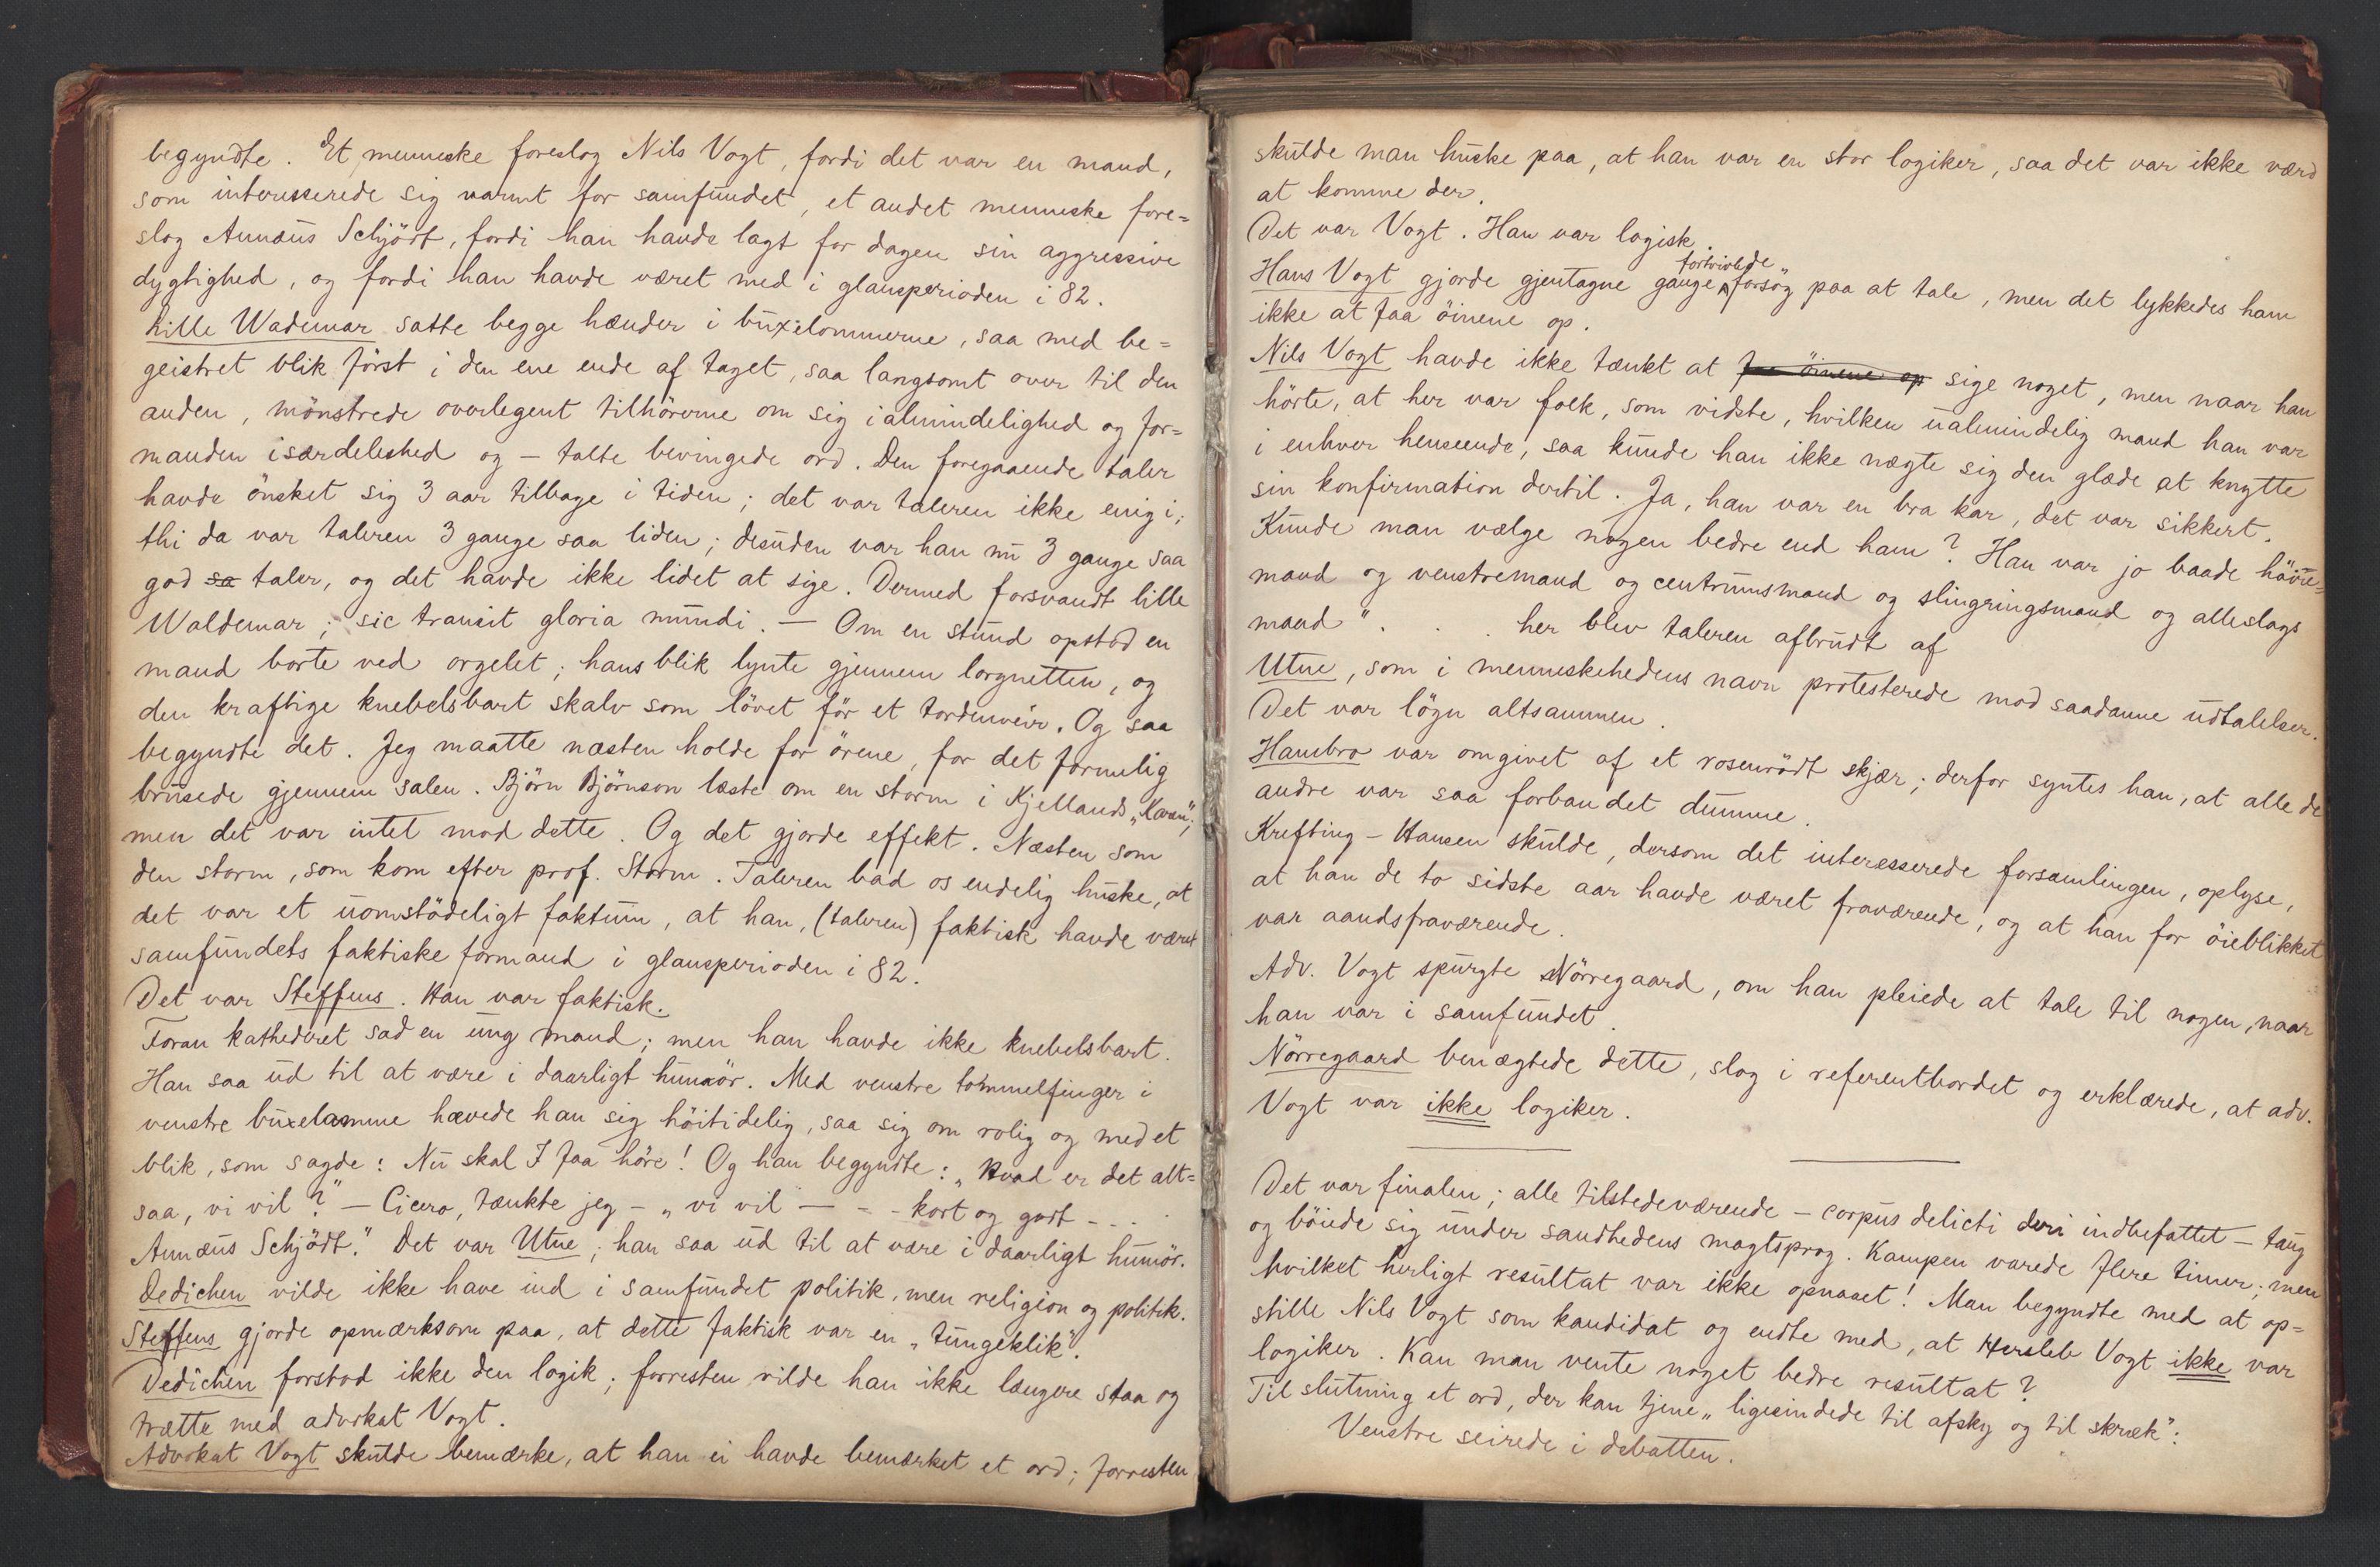 begyndte. Et menneske foreslog Nils Vogt, fordi det var en mand,
som interesserede sig varmt for samfundet, et andet menneske fore=
slog Annæus Schjödt, fordi han havde lagt for dagen sin aggressive
dygtighed, og fordi han havde været med i glansperioden i 82.
Lille Wademar satte begge hænder i buxelommerne, saa med be=
geistret blik först i den ene ende af taget, saa langsomt over til den
anden, mönstrede overlegent tilhörerne om sig i almindelighed og for=
manden i særdeleshed og — talte bevingede ord. Den foregaaende taler
havde önsket sig 3 aar tilbage i tiden; det var taleren ikke enig i;
thi da var taleren 3 gange saa liden; desuden var han nu 3 gange saa
god sa taler, og det havde ikke lidet at sige. Dermed forsvandt lille
Waldemar; sic transit gloria mundi. — Om en stund opstod en
mand borte ved orgelet; hans blik lynte gjennem lorgnetten, og
den kraftige knebelsbart skalv som lövet för et tordenveir. Og saa
begyndte det. Jeg maatte næsten holde for örene, for det formelig
brusede gjennem salen. Björn Björnson læste om en storm i Kjellands „Karen";
men det var intet mod dette. Og det gjorde effekt. Næsten som
den storm, som kom efter prof. Storm. Taleren bad os endelig huske, at
det var et uomstödeligt faktum, at han, (taleren) faktisk havde været
samfundets faktiske formand i glansperioden i 82.
Det var Steffens. Han var faktisk.
Foran kathederet sad en ung mand; men han havde ikke knebelsbart.
Han saa ud til at være i daarligt humör. Med venstre tommelfinger i
venstre buxelomme hævede han sig höitidelig, saa sig om rolig og med et
blik, som sagde: Nu skal I faa höre! Og han begyndte: „Hvad er det alt=
saa, vi vil?" — Cicero, tænkte jeg — „vi vil — - - kort og godt - - - .
Annæus Schjödt." Det var Utne; han saa ud til at være i daarligt humör.
Dedichen vilde ikke have ind i samfundet politik, men religion og politik.
Steffens gjorde opmærksom paa, at dette faktisk var en „tungeklik".
Dedichen forstod ikke den logik; forresten vilde han ikke længere staa og
trætte med advokat Vogt.
Advokat Vogt skulde bemærke, at han ei havde bemærket et ord; forresten
skulde man huske paa, at han var en stor logiker, saa det var ikke værd
at komme der.
Det var Vogt. Han var logisk.
Hans Vogt gjorde gjentagne gange fortvivlede forsög paa at tale, men det lykkedes ham
ikke at faa öinene op.
Nils Vogt havde ikke tænkt at faa öinene op sige noget, men naar han
hörte, at her var folk, som vidste, hvilken ualmindelig mand han var
i enhver henseende, saa kunde han ikke nægte sig den glæde at knytte
sin konfirmation dertil. Ja, han var en bra kar, det var sikkert.
Kunde man vælge nogen bedre end ham? Han var jo baade höire=
mand og venstremand og centrumsmand og slingringsmand og alleslags
mand" . . . her blev taleren afbrudt af
Utne, som i menneskehedens navn protesterede mod saadanne udtalelser.
Det var lögn altsammen.
Hambro var omgivet af et rosenrödt skjær; derfor syntes han, at alle de
andre var saa forbandet dumme.
Krefting-Hansen skulde, dersom det interesserede forsamlingen, oplyse,
at han de to sidste aar havde været fraværende, og at han for öieblikket
var aandsfraværende.
Adv. Vogt spurgte Nörregaard, om han pleiede at tale til nogen, naar
han var i samfundet.
Nörregaard benægtede dette, slog i referentbordet og erklærede, at adv.
Vogt var ikke logiker.
Det var finalen; alle tilstedeværende — corpus delicti deri indbefattet — taug
og böiede sig under sandhedens magtsprog. Kampen varede flere timer; men
hvilket herligt resultat var ikke opnaaet! Man begyndte med at op=
stille Nils Vogt som kandidat og endte med, at Hersleb Vogt ikke var
logiker. Kan man vente noget bedre resultat?
Til slutning et ord, der kan tjene „ligesindede til afsky og til skræk":
Venstre seirede i debatten.